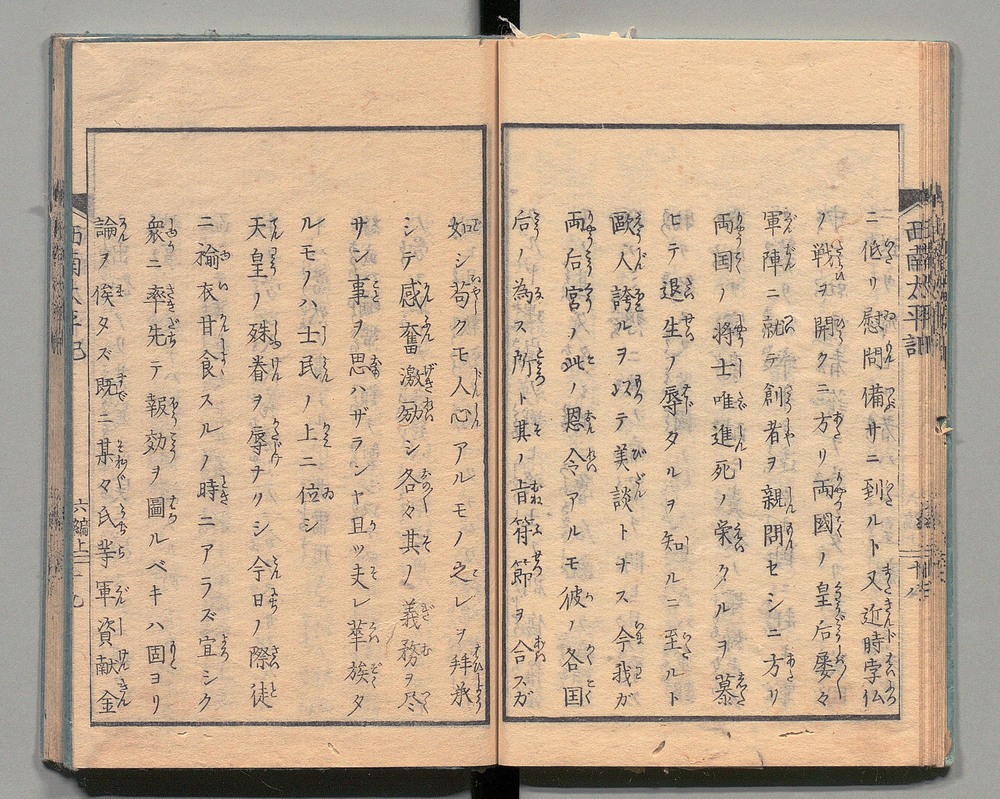 ニ低リ慰問備サニ到ルト又近時孛仏
ノ戦ヲ開クニ方リ両國ノ皇后屡々
軍陣ニ就テ創者ヲ親問セシニ方リ
両国ノ将士唯進死ノ栄タルヲ慕
ヒテ退生ノ辱タルヲ知ルニ至ルト
歐人誇ルヲ以テ美談トナス今我ガ
両后宮ノ此ノ恩令アルモ彼ノ各国
后ノ為ス所ト其ノ旨符節ヲ合スガ
如シ苟クモ人心アルモノ之レヲ拝承
シテ感奮激励シ各々其ノ義務ヲ尽
サン事ヲ思ハザランヤ且ツ夫レ華族タ
ルモノハ士民ノ上ニ位シ
天皇ノ殊眷ヲ辱ナリシ今日ノ際徒
ニ褕衣甘食スルノ時ニアラズ宜シク
衆ニ率先テ報効ヲ圖ルベキハ固ヨリ
論ヲ俟タズ既ニ某々氏等軍資献金
西南太平記
六編上